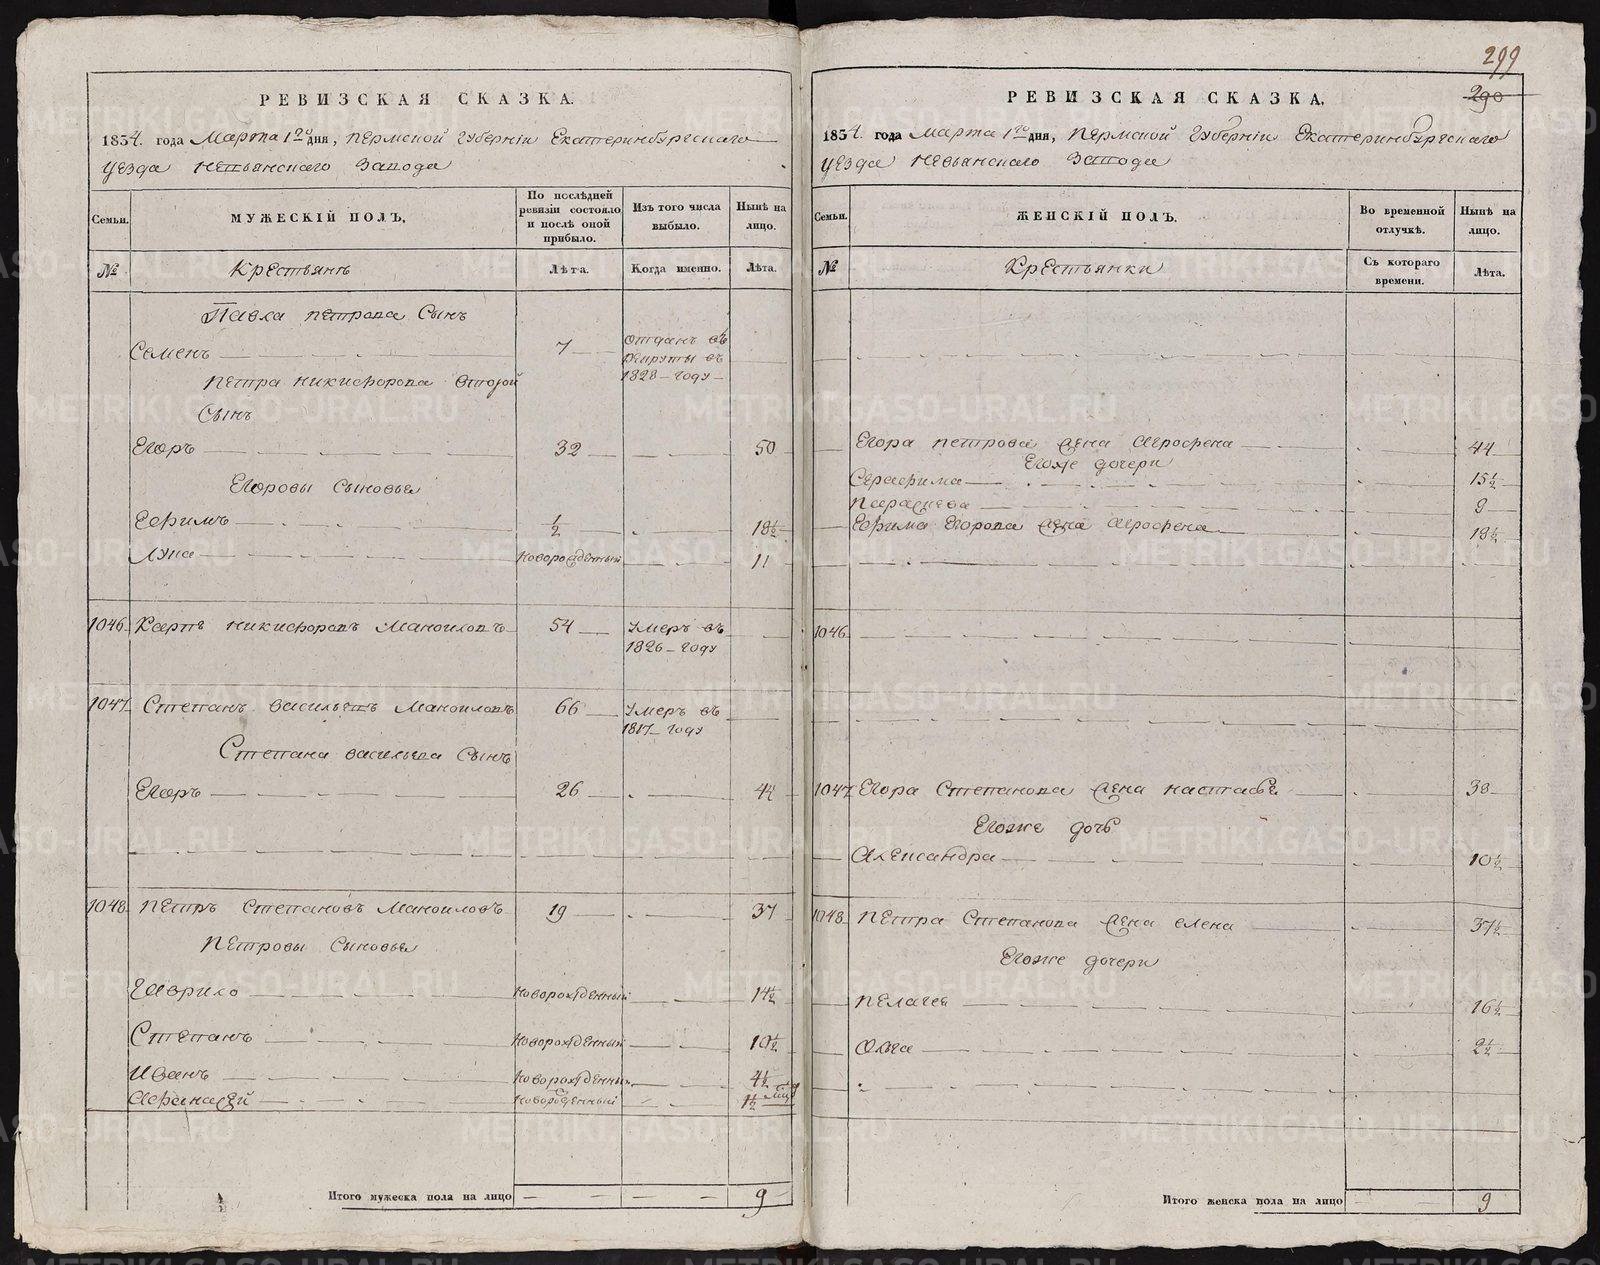 299
290
РЕВИЗСКАЯ СКАЗКА.
1834. года Марта 1го дня, Пермской Губерніи Екатеринбургскаго
уезда Невьянскаго Завода
Семьи.
МУЖЕСКІЙ ПОЛЪ.
По послѣдней ревизіи состояло и послѣ оной прибыло.
Изъ того числа выбыло.
Нынѣ на лицо.
№
Крестьянъ
Лѣта.
Когда именно.
Лѣта.
Павла Петрова Сынъ
Семенъ 7 отданъ въ
рекруты въ
1828 году
Петра Никифорова второй
Сынъ
Егоръ 32 50
Егоровы Сыновья
Ефимъ 1/2 18 1/2
Лука новорожденный 11
1046 Карпъ Никифоровъ Маноиловъ 54 умеръ въ
1826 году
1047 Степанъ Васильевъ Маноиловъ 66 умеръ въ
1817 году
Степана Васильева Сынъ
Егоръ 26 44
1048 Петръ Степановъ Маноиловъ 19 37
Петровы Сыновья
Гаврило новорожденный 14 1/2
Степанъ новорожденный 10 1/2
Иванъ новорожденный 4 1/2
Афанасей новорожденный 1 1/2
Итого мужеска пола на лицо 9
РЕВИЗСКАЯ СКАЗКА.
1834. года Марта 1го дня, Пермской Губерніи Екатеринбургскаго
уезда Невьянскаго Завода
Семьи.
ЖЕНСКІЙ ПОЛЪ.
Во временной отлучкѣ.
Нынѣ на лицо.
№
Крестьянки
Съ котораго времени.
Лѣта.
Егора Петрова жена Агрофена 44
Егоже дочери
Серафима 15 1/2
Параскева 9
Ефима Егорова жена Агрофена 18 1/2
1046
1047 Егора Степанова жена Настасья 38
Егоже дочь
Александра 10 1/2
1048 Петра Степанова жена Елена 37 1/2
Егоже дочери
Пелагея 16 1/2
Ольга 2 1/2
Итого женска пола на лицо 9
METRIKI.GASO-URAL.RU